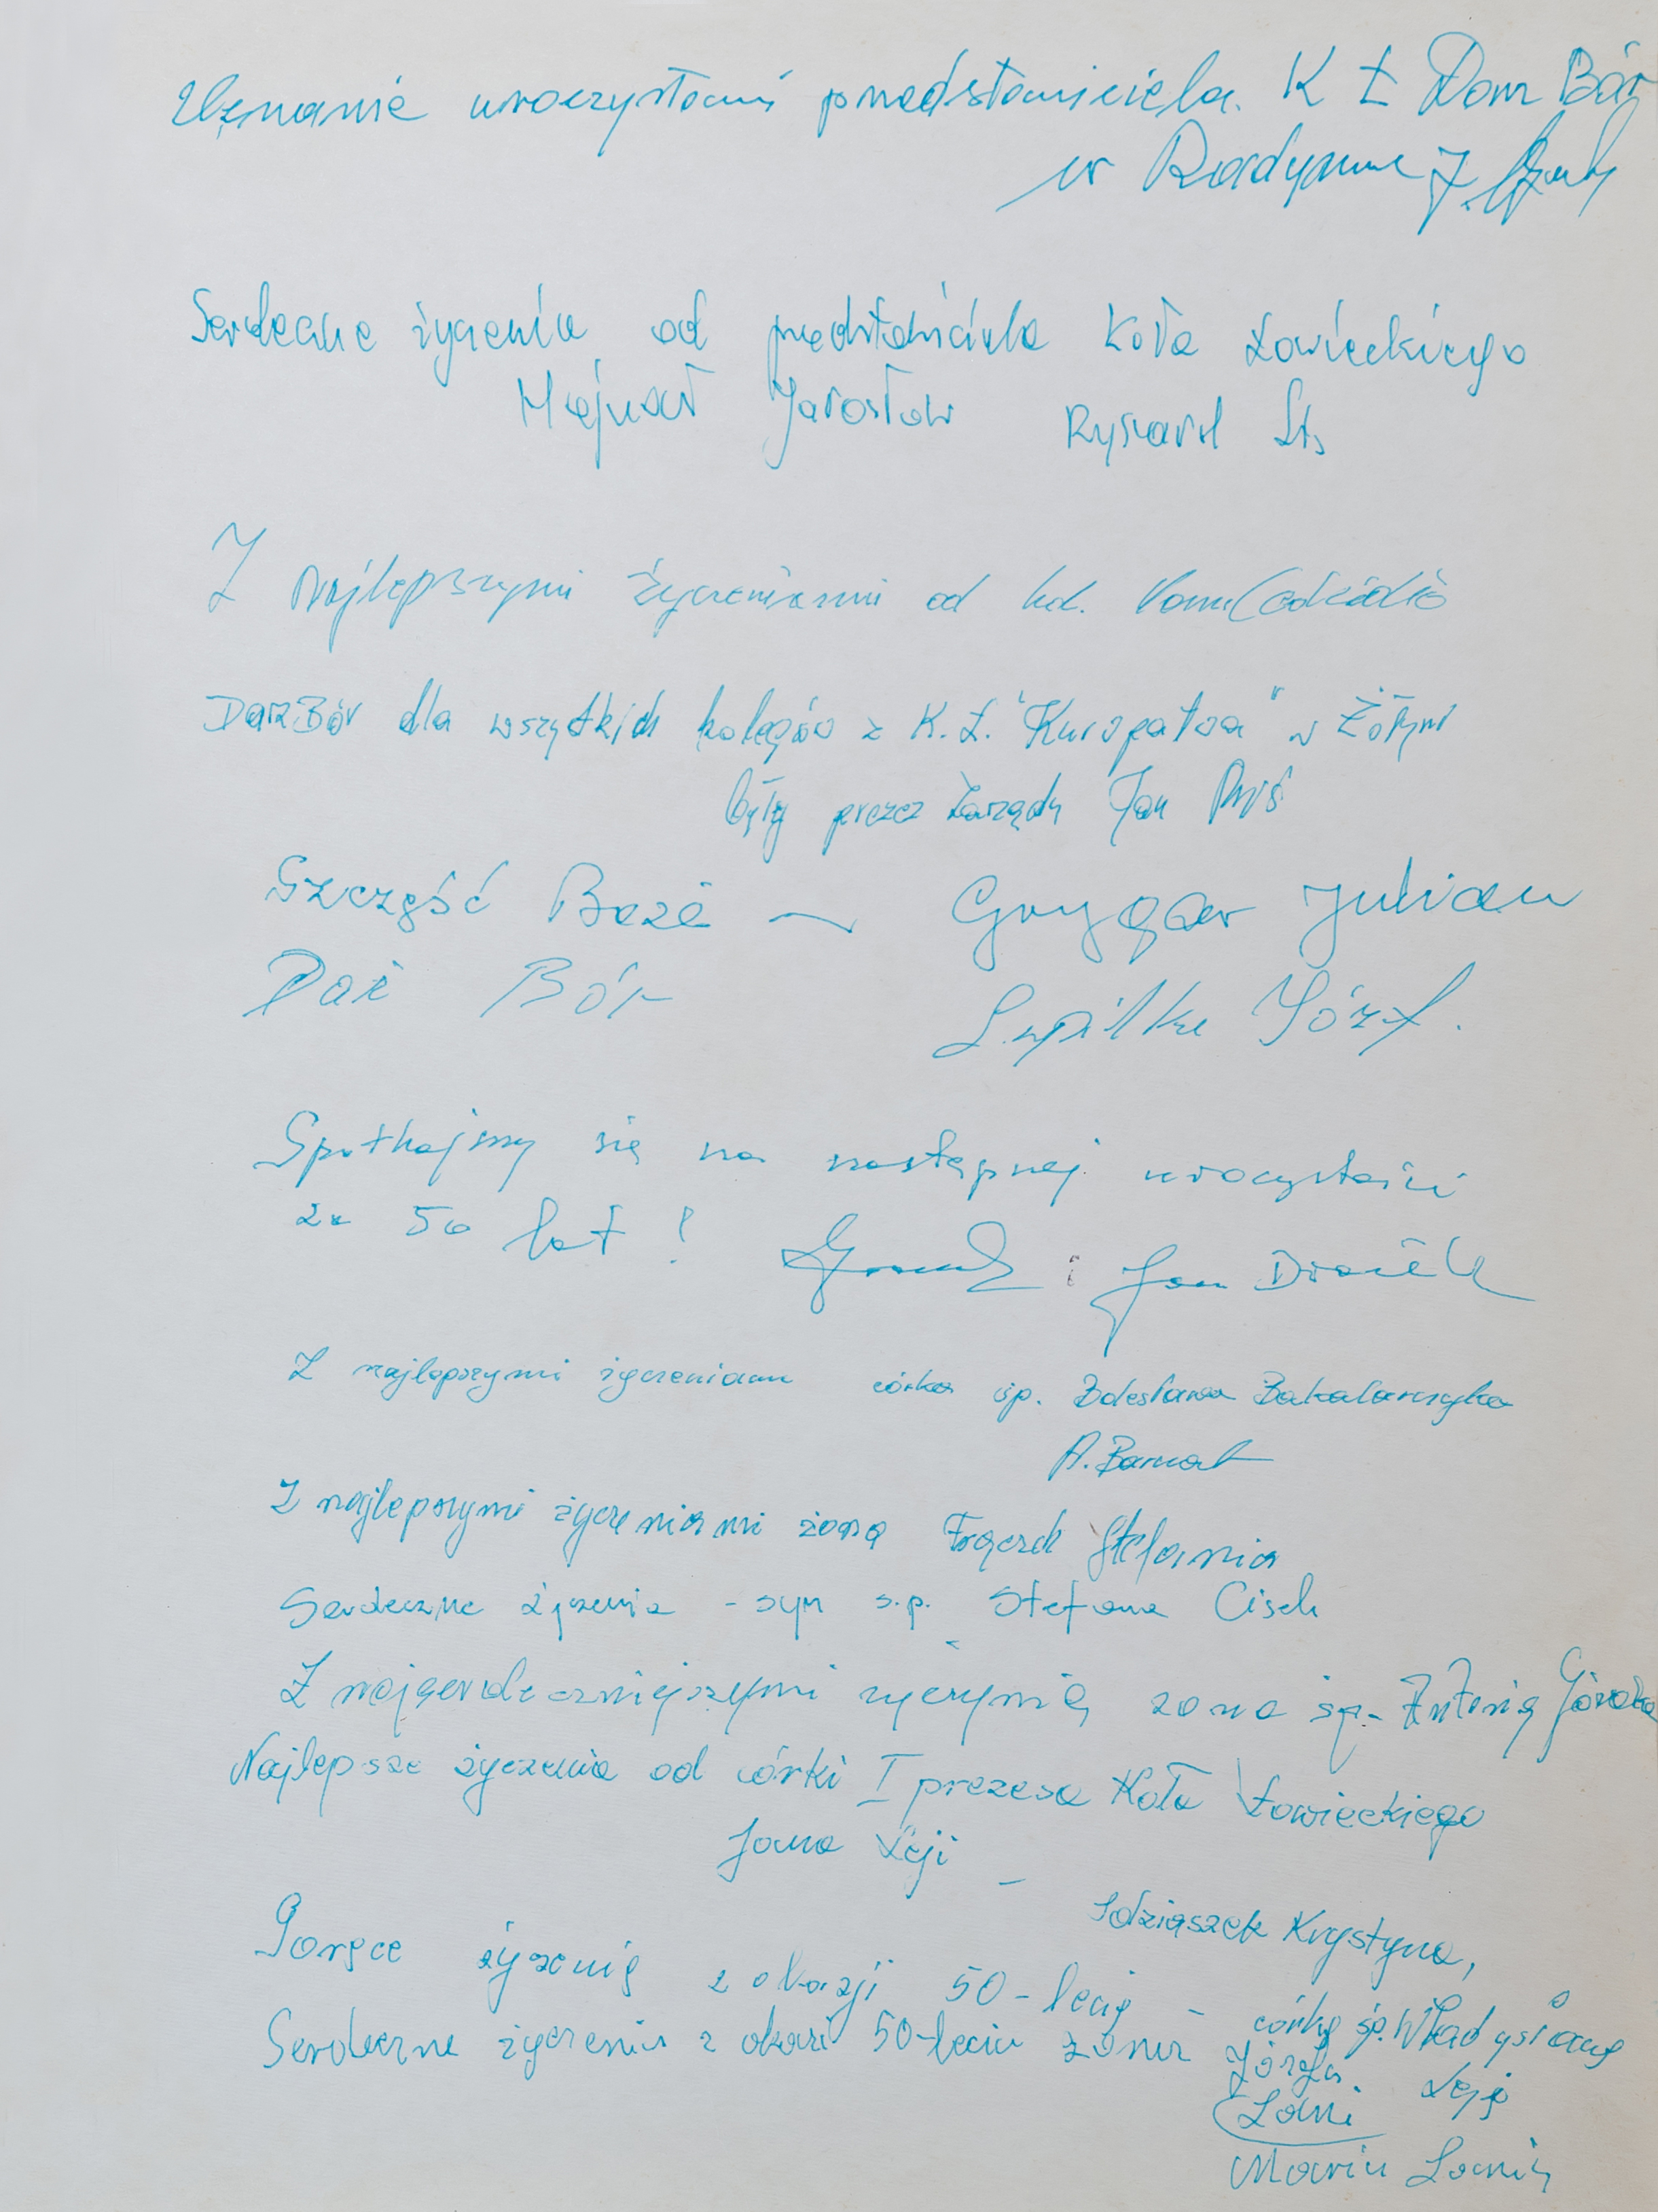 Uznanie uroczystości przedstawiciela K Ł Darz Bór
w Radymnie J.
Serdeczne życzenia od przedstawiciela Koła Łowieckiego
Hejnał Jarosław Ryszard
Z najlepszymi życzeniami od
Darz Bór dla wszystkich kolegów z K.Ł. "Kuropatwa" w Żołyni
były prezes Zarządu Jan
Szczęść Boże — Grygar Julian
Daż Bór Szpilka Józef.
Spotkajmy się na następnej uroczystości
za 50 lat! i Jan
Z najlepszymi życzeniami córka śp. Bolesława Bakalarczyka
A. Barnat
Z najlepszymi życzeniami żona Frączek Stefania
Serdeczne życzenia - syn s.p. Stefana Cisek
Z najserdeczniejszymi żona śp.
Najlepsze życzenia od córki I prezesa Koła Łowieckiego
Jana Leji —
Idziaszek Krystyna,
Gorące życzenia z okazji 50-lecia - córka śp. Władysława
Leję
Serdeczne życzenia z okazi 50-leciu żona Józefa
Łoni
Maria